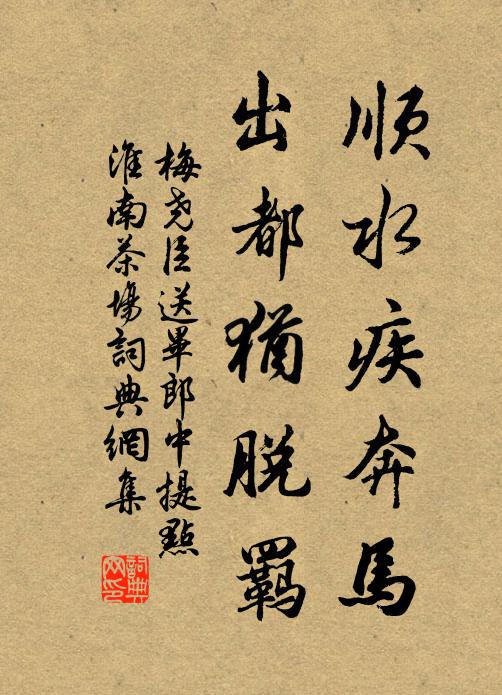 順水疾奔馬
出都猶脫羈
梅尭臣送畢郎中提點
淮南茶場詞典網集
詞典
网印